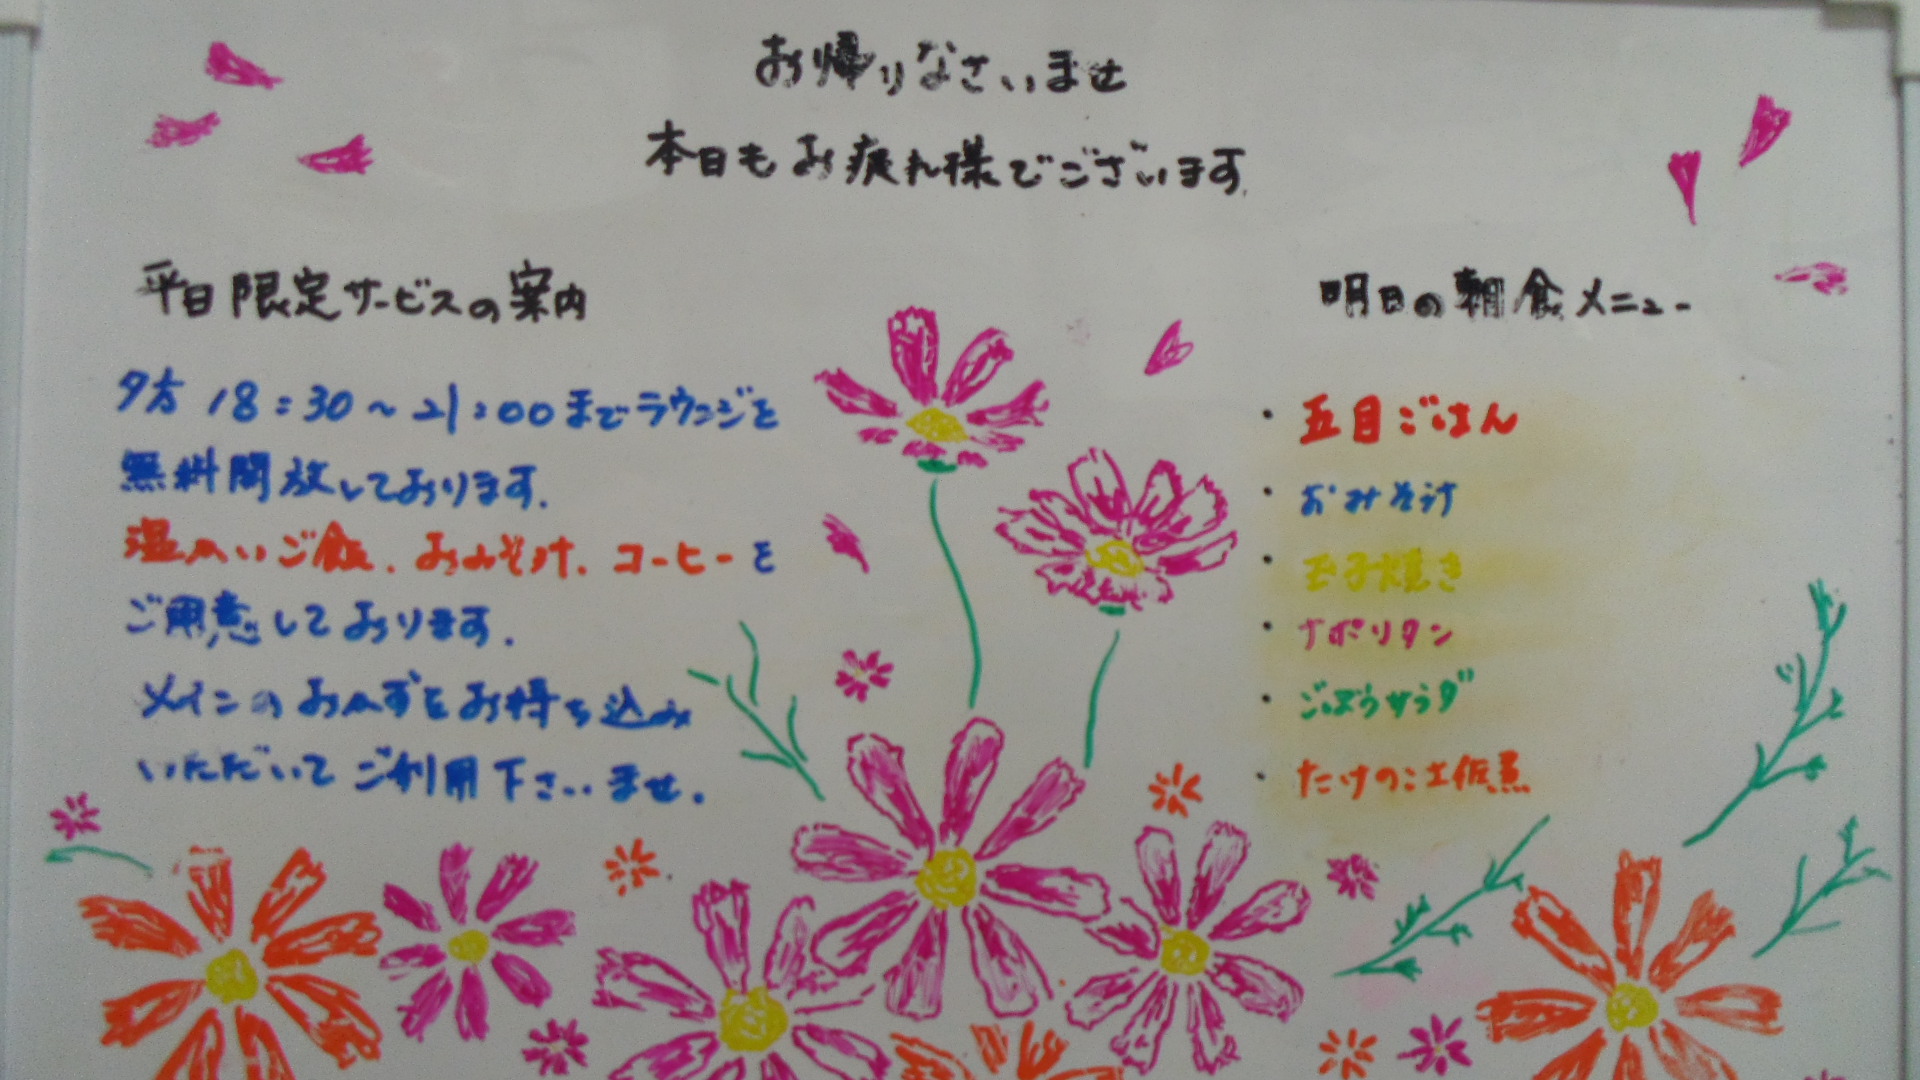 お帰りなさいませ
本日もお疲れ様でございます
平日限定サービスの案内
夕方 18:30～21:00までラウンジを
無料開放しております.
温かいご飯.おみそ汁.コーヒーを
ご用意しております.
メインのおかずをお持ち込み
いただいてご利用下さいませ.
明日の朝食メニュー
・五目ごはん
・おみそ汁
・玉子焼き
・ナポリタン
・ごぼうサラダ
・たけのこ土佐煮